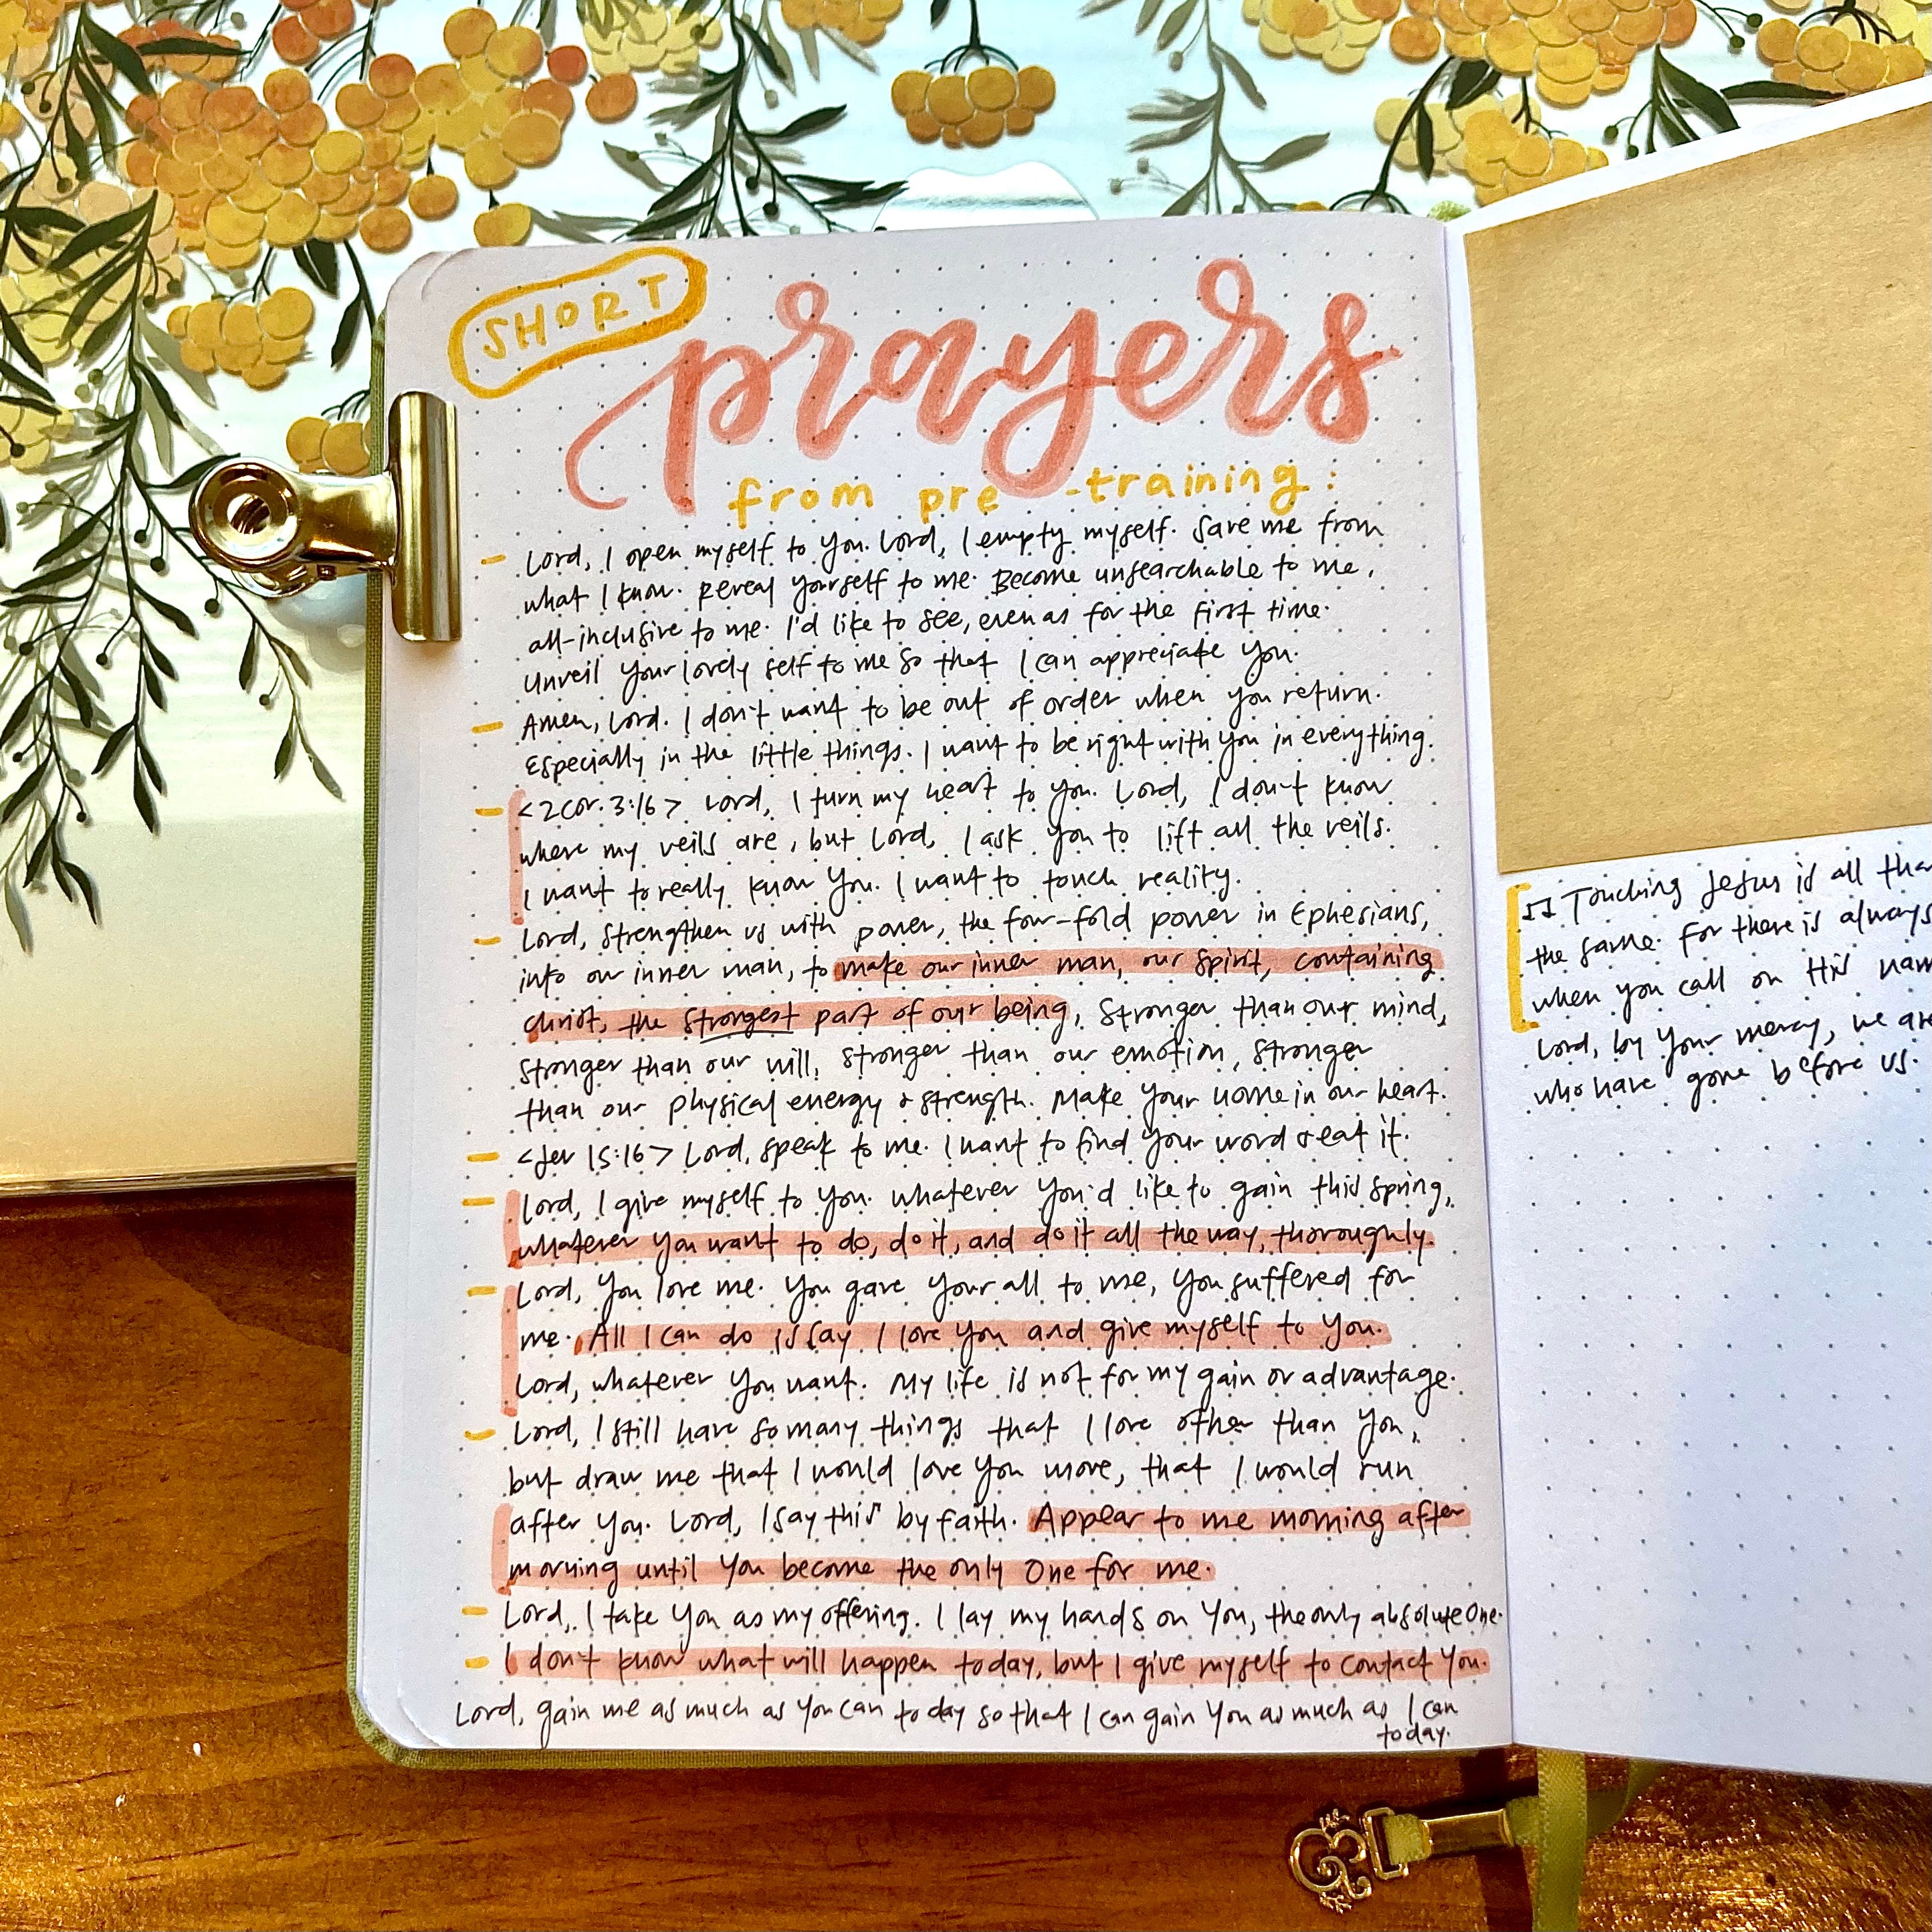 SHORT
prayers
from pre-training:
- Lord, I open myself to You. Lord, I empty myself. Save me from
what I know. Reveal Yourself to me. Become unsearchable to me,
all-inclusive to me. I'd like to see, even as for the first time.
Unveil Your lovely self to me so that I can appreciate You.
- Amen, Lord. I don't want to be out of order when you return.
Especially in the little things. I want to be right with You in everything.
- <2 Cor. 3:16> Lord, I turn my heart to You. Lord, I don't know
where my veils are, but Lord, I ask You to lift all the veils.
I want to really know You. I want to touch reality.
- Lord, strengthen us with power, the four-fold power in Ephesians,
into our inner man, to make our inner man, our spirit, containing
Christ, the strongest part of our being, stronger than our mind,
stronger than our will, stronger than our emotion, stronger
than our physical energy & strength. Make Your home in our heart.
- <Jer 15:16> Lord, speak to me. I want to find Your word & eat it.
- Lord, I give myself to You. Whatever You'd like to gain this spring,
whatever You want to do, do it, and do it all the way, thoroughly.
- Lord, You love me. You gave Your all to me, You suffered for
me. All I can do is say I love You and give myself to You.
Lord, whatever You want. My life is not for my gain or advantage.
- Lord, I still have so many things that I love other than You,
but draw me that I would love You more, that I would run
after You. Lord, I say this by faith. Appear to me morning after
morning until You become the only One for me.
- Lord, I take You as my offering. I lay my hands on You, the only absolute One.
- I don't know what will happen today, but I give myself to contact You.
Lord, gain me as much as You can today so that I can gain You as much as I can
today.
♫ Touching Jesus is all tha
the same. For there is always
when you call on His nam
Lord, by Your mercy, we are
who have gone before us.